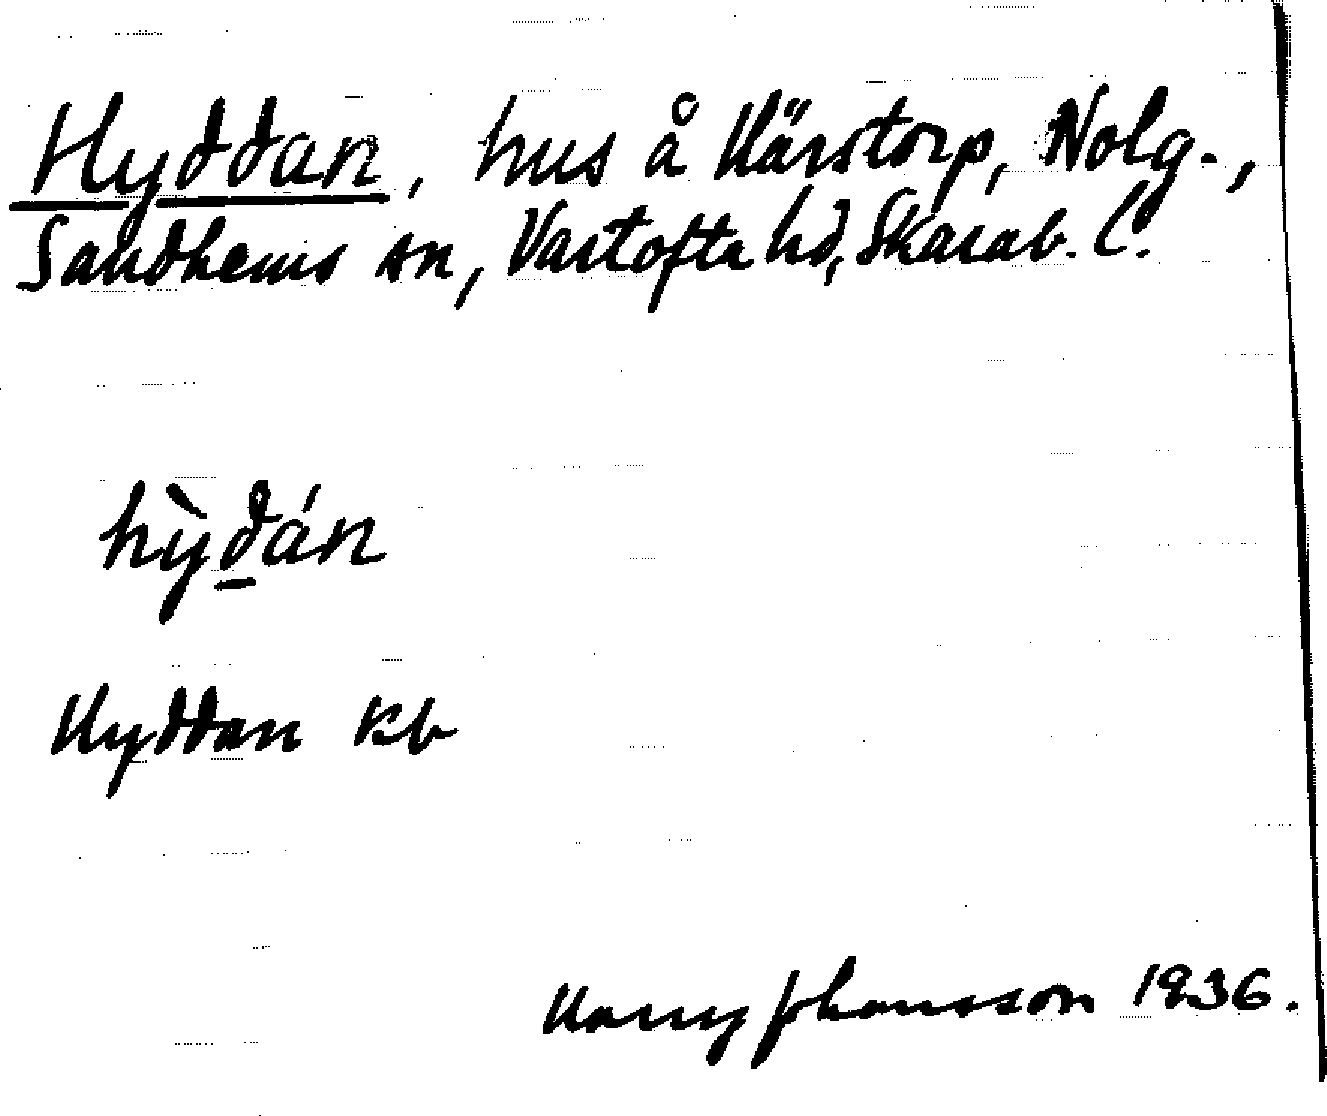 Hyddan, hus å Härstorp, Nolg.,
Sandhems sn, Vartofta hd, Skarab. L.
hỳd̲án
Hyddan kb
Harry Johansson 1936.